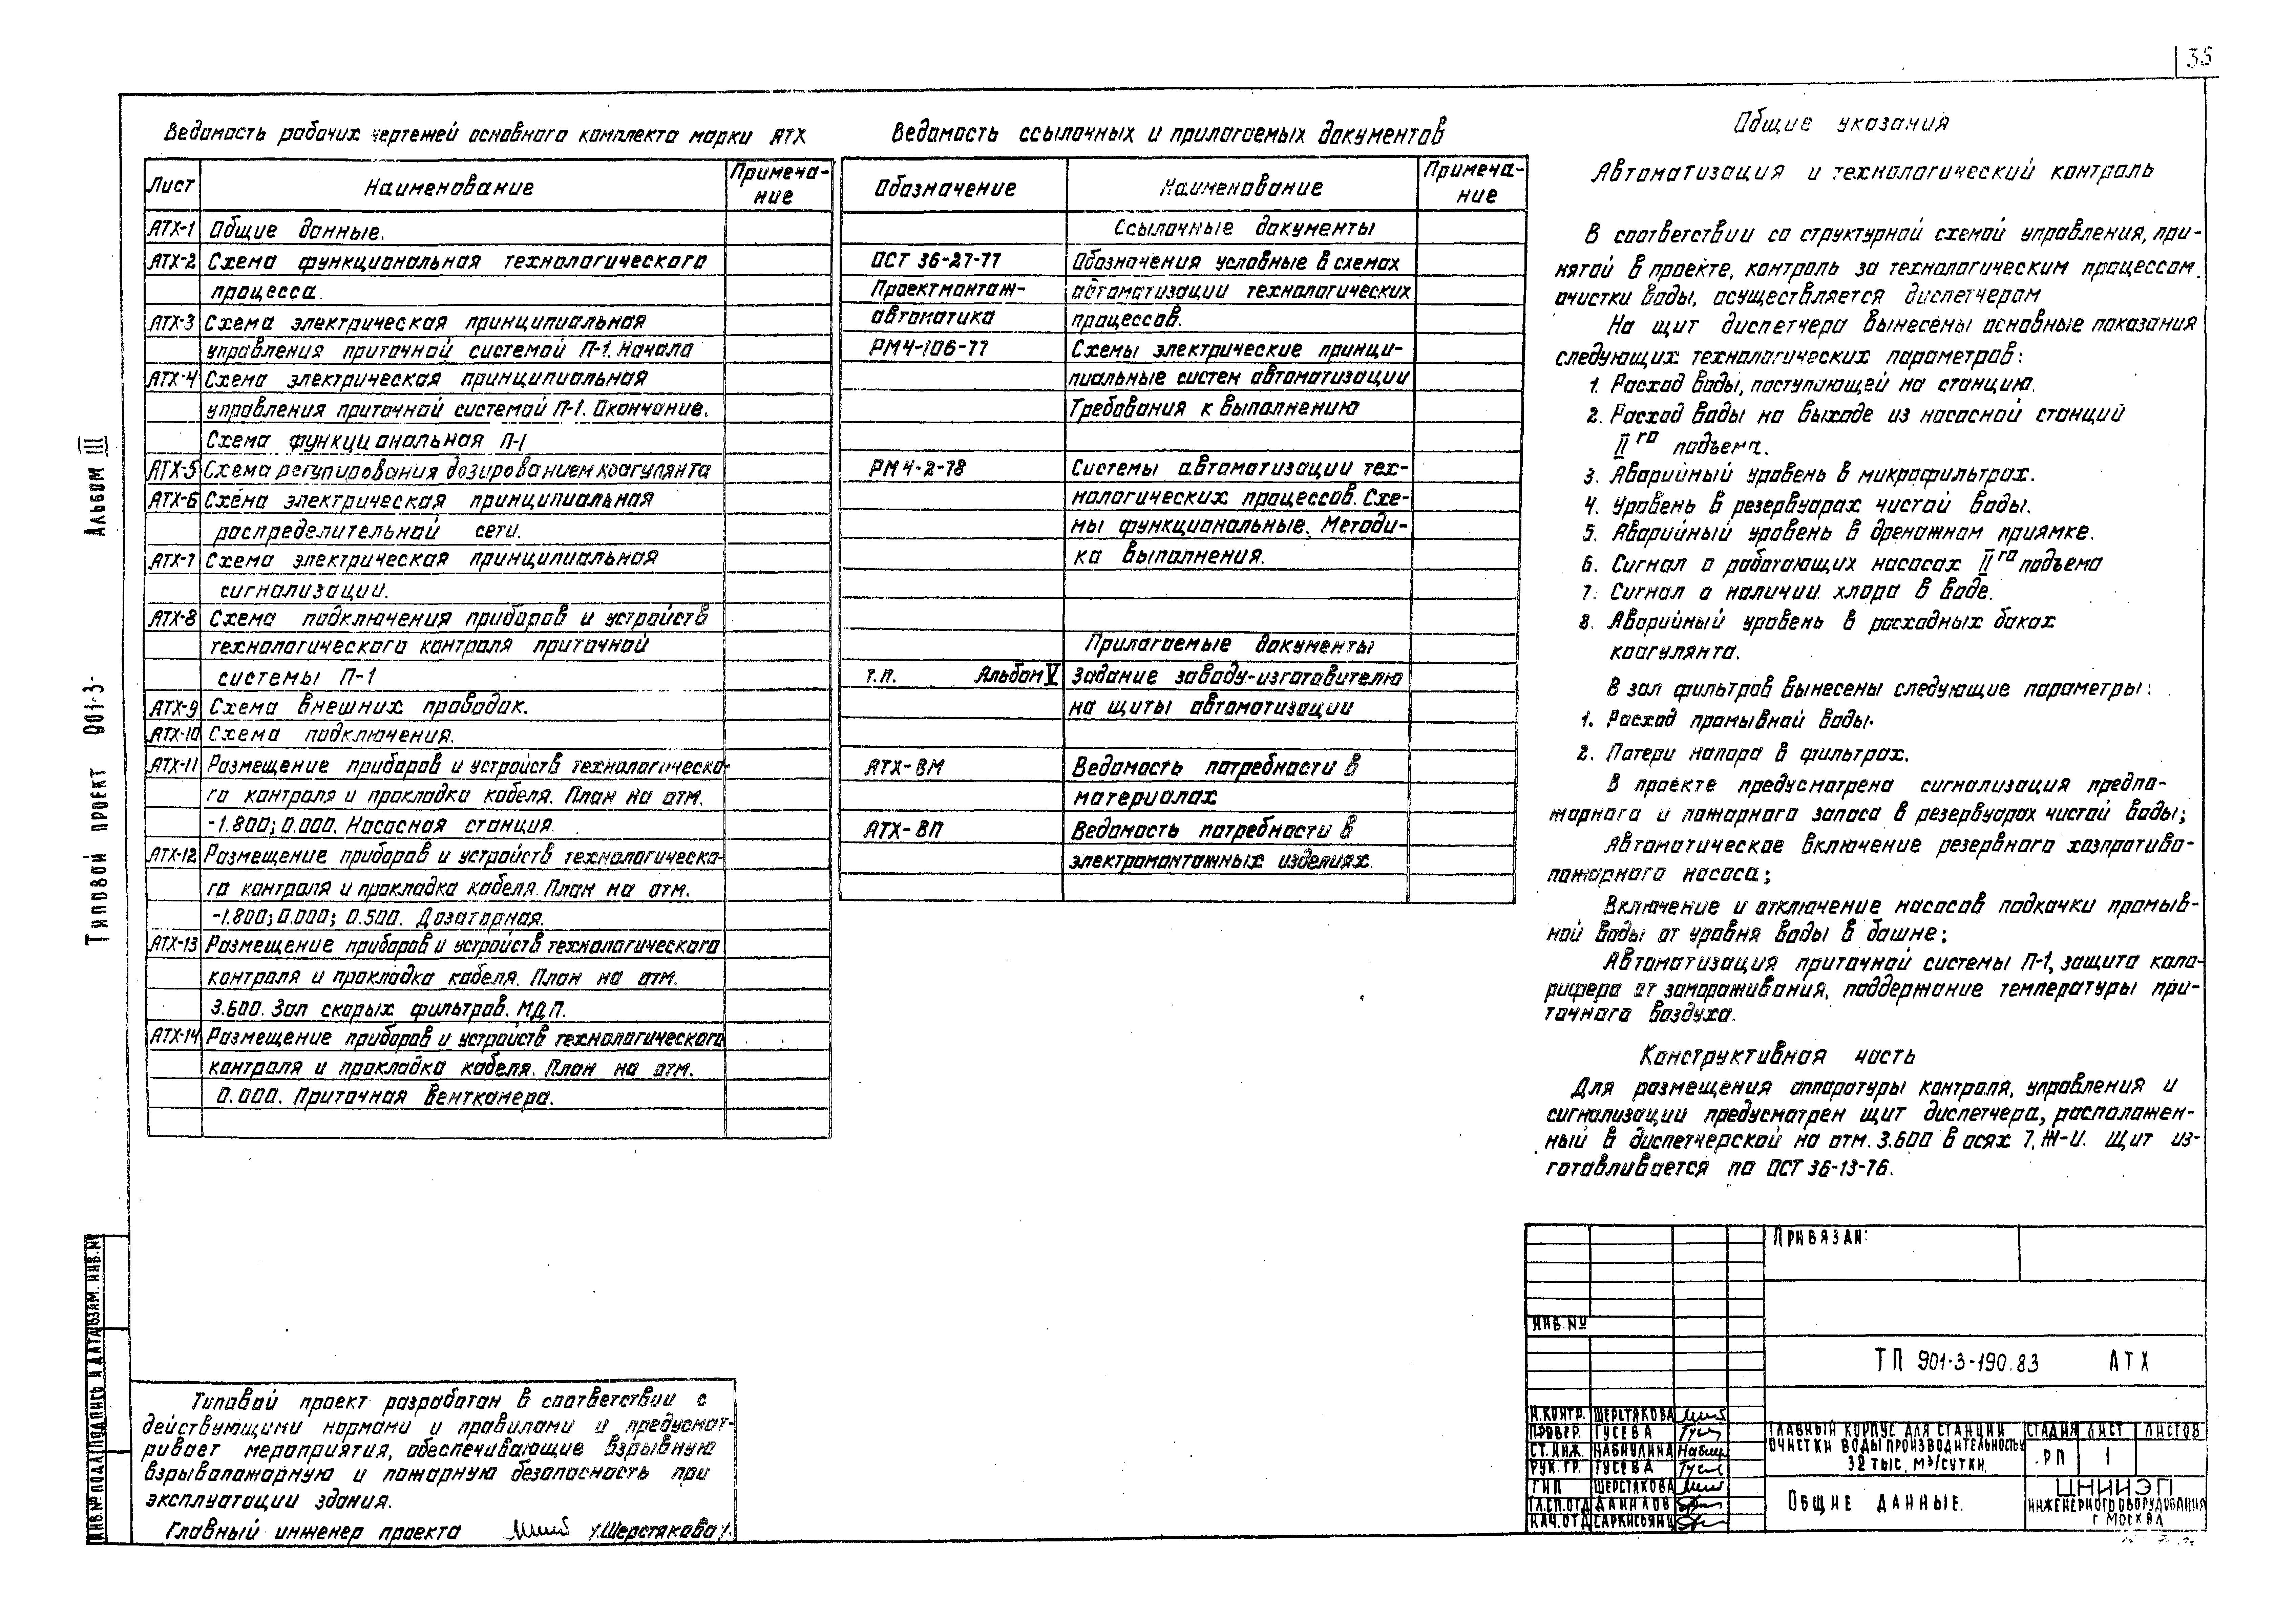 35
Ведомость рабочих чертежей основного комплекта марки АТХ
Лист Наименование Примеча-
ние
АТХ-1 Общие данные.
АТХ-2 Схема функциональная технологического
процесса.
АТХ-3 Схема электрическая принципиальная
управления приточной системой П-1. Начало
АТХ-4 Схема электрическая принципиальная
управления приточной системой П-1. Окончание.
Схема функциональная П-1
АТХ-5 Схема регулирования дозированием коагулянта
АТХ-6 Схема электрическая принципиальная
распределительной сети.
АТХ-7 Схема электрическая принципиальная
сигнализации.
АТХ-8 Схема подключения приборов и устройств
технологического контроля приточной
системы П-1
АТХ-9 Схема внешних проводок.
АТХ-10 Схема подключения.
АТХ-11 Размещение приборов и устройств технологическо-
го контроля и прокладка кабеля. План на отм.
-1.800; 0.000. Насосная станция.
АТХ-12 Размещение приборов и устройств технологическо-
го контроля и прокладка кабеля. План на отм.
-1.800; 0.000; 0.500. Дозаторная.
АТХ-13 Размещение приборов и устройств технологического
контроля и прокладка кабеля. План на отм.
3.600. Зал скорых фильтров. МДП.
АТХ-14 Размещение приборов и устройств технологического
контроля и прокладка кабеля. План на отм.
0.000. Приточная венткамера.
Ведомость ссылочных и прилагаемых документов
Обозначение Наименование Примеча-
ние
Ссылочные документы
ОСТ 36-27-77 Обозначения условные в схемах
Проектмонтаж- автоматизации технологических
автоматика процессов.
РМ4-106-77 Схемы электрические принци-
пиальные систем автоматизации
Требования к выполнению
РМ4-2-78 Системы автоматизации тех-
нологических процессов. Схе-
мы функциональные. Методи-
ка выполнения.
Прилагаемые документы
т.п. Альбом V Задание заводу-изготовителю
на щиты автоматизации
АТХ-ВМ Ведомость потребности в
материалах
АТХ-ВП Ведомость потребности в
электромонтажных изделиях.
Общие указания
Автоматизация и технологический контроль
В соответствии со структурной схемой управления, при-
нятой в проекте, контроль за технологическим процессом
очистки воды, осуществляется диспетчером
На щит диспетчера вынесены основные показания
следующих технологических параметров:
1. Расход воды, поступающей на станцию.
2. Расход воды на выходе из насосной станций
II го подъема.
3. Аварийный уровень в микрофильтрах.
4. Уровень в резервуарах чистой воды.
5. Аварийный уровень в дренажном приямке.
6. Сигнал о работающих насосах II го подъема
7. Сигнал о наличии хлора в воде.
8. Аварийный уровень в расходных баках
коагулянта.
В зал фильтров вынесены следующие параметры:
1. Расход промывной воды.
2. Потери напора в фильтрах.
В проекте предусмотрена сигнализация предпо-
жарного и пожарного запаса в резервуарах чистой воды;
Автоматическое включение резервного хозпротиво-
пожарного насоса;
Включение и отключение насосов подкачки промыв-
ной воды от уровня воды в башне;
Автоматизация приточной системы П-1, защита кало-
рифера от замораживания, поддержание температуры при-
точного воздуха.
Конструктивная часть
Для размещения аппаратуры контроля, управления и
сигнализации предусмотрен щит диспетчера, расположен-
ный в диспетчерской на отм. 3.600 в осях 7, Ж-И. Щит из-
готавливается по ОСТ 36-13-76.
Альбом III
Типовой проект 901-3-
ИНВ.№ ПОДЛ. ПОДПИСЬ И ДАТА ВЗАМ. ИНВ.№
Типовой проект разработан в соответствии с
действующими нормами и правилами и предусмат-
ривает мероприятия, обеспечивающие взрывную
взрывопожарную и пожарную безопасность при
эксплуатации здания.
Главный инженер проекта /Шерстякова/.
ПРИВЯЗАН:
ИНВ.№
ТП 901-3-190.83 АТХ
Н.КОНТР. ШЕРСТЯКОВА
ПРОВЕР. ГУСЕВА
СТ.ИНЖ. НАБИУЛИНА
РУК.ГР. ГУСЕВА
ГИП ШЕРСТЯКОВА
ГЛ.СП.ОТД ДАНИЛОВ
НАЧ.ОТД САРКИСЯНЦ
ГЛАВНЫЙ КОРПУС ДЛЯ СТАНЦИИ
ОЧИСТКИ ВОДЫ ПРОИЗВОДИТЕЛЬНОСТЬЮ
32 ТЫС. М³/СУТКИ.
СТАДИЯ ЛИСТ ЛИСТОВ
РП 1
ОБЩИЕ ДАННЫЕ.
ЦНИИЭП
ИНЖЕНЕРНОГО ОБОРУДОВАНИЯ
Г МОСКВА